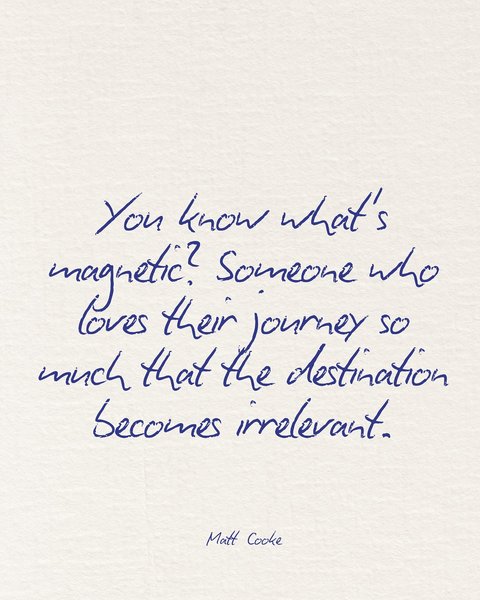 You know what's
magnetic? Someone who
loves their journey so
much that the destination
becomes irrelevant.
Matt Cooke